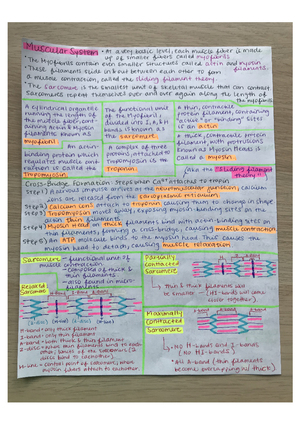 Muscular System • At a very basic level, each muscle fiber is made up of smaller fibers called myofibrils
• The myofibrils contain even smaller structures called actin and myosin filaments.
• These filaments slide in & out between each other to form a muscle contraction, called the sliding filament theory.
• The Sarcomere is the smallest unit of skeletal muscle that can contract
Sarcomeres repeat themselves over and over again along the length of the myofibrils
A cylindrical organelle running the length of the muscle fiber, containing actin & myosin filaments known as myofibril.
The functional unit of the myofibril, divided into I, A, & H bands is known as the sarcomere.
A thin, contractile protein filament, containing "active" or "binding" sites of an actin
A thick, contractile protein filament with protrusions known as Myosin Heads is called a myosin.
An actin-binding protein which regulates muscle contraction is called the Tropomyosin
A complex of three proteins, attached to tropomyosin is the Troponin.
Cross-Bridge Formation: Steps when Ca2+ attaches to tropnin
(aka the Sliding filament
Step 1) A nervous impulse arrives at the neuromuscular junction, calcium ions are released from the sarcoplasmic reticulum.
Step 2) Calcium ions attach to troponin causing them to change in shape
Step 3) Tropomyosin moved aways, exposing myosin-binding sites on the actin thin filaments.
Step 4) Myosin head on thick filament bind with actin-binding sites on thin filaments forming a cross-bridge, causing muscle contraction
Step 5) An ATP molecule binds to the myosin head. This causes the myosin head to detach, causing muscle relaxation
Sarcomere - functional unit of muscle contraction
- composed of thick & thin filaments
- also found in myofilaments
Relaxed Sarcomere
H-band = only thick filament
I-band = only thin filament
A-band = both thick & thin filament
Partially Contracted Sarcomere
↳ Thin & thick filaments will be smaller
Maximally Contracted Sarcomere
↳ • No H-bands and I-bands
(NO HI-bands)
• All A-band (thin filaments become overlapping w/ thick)